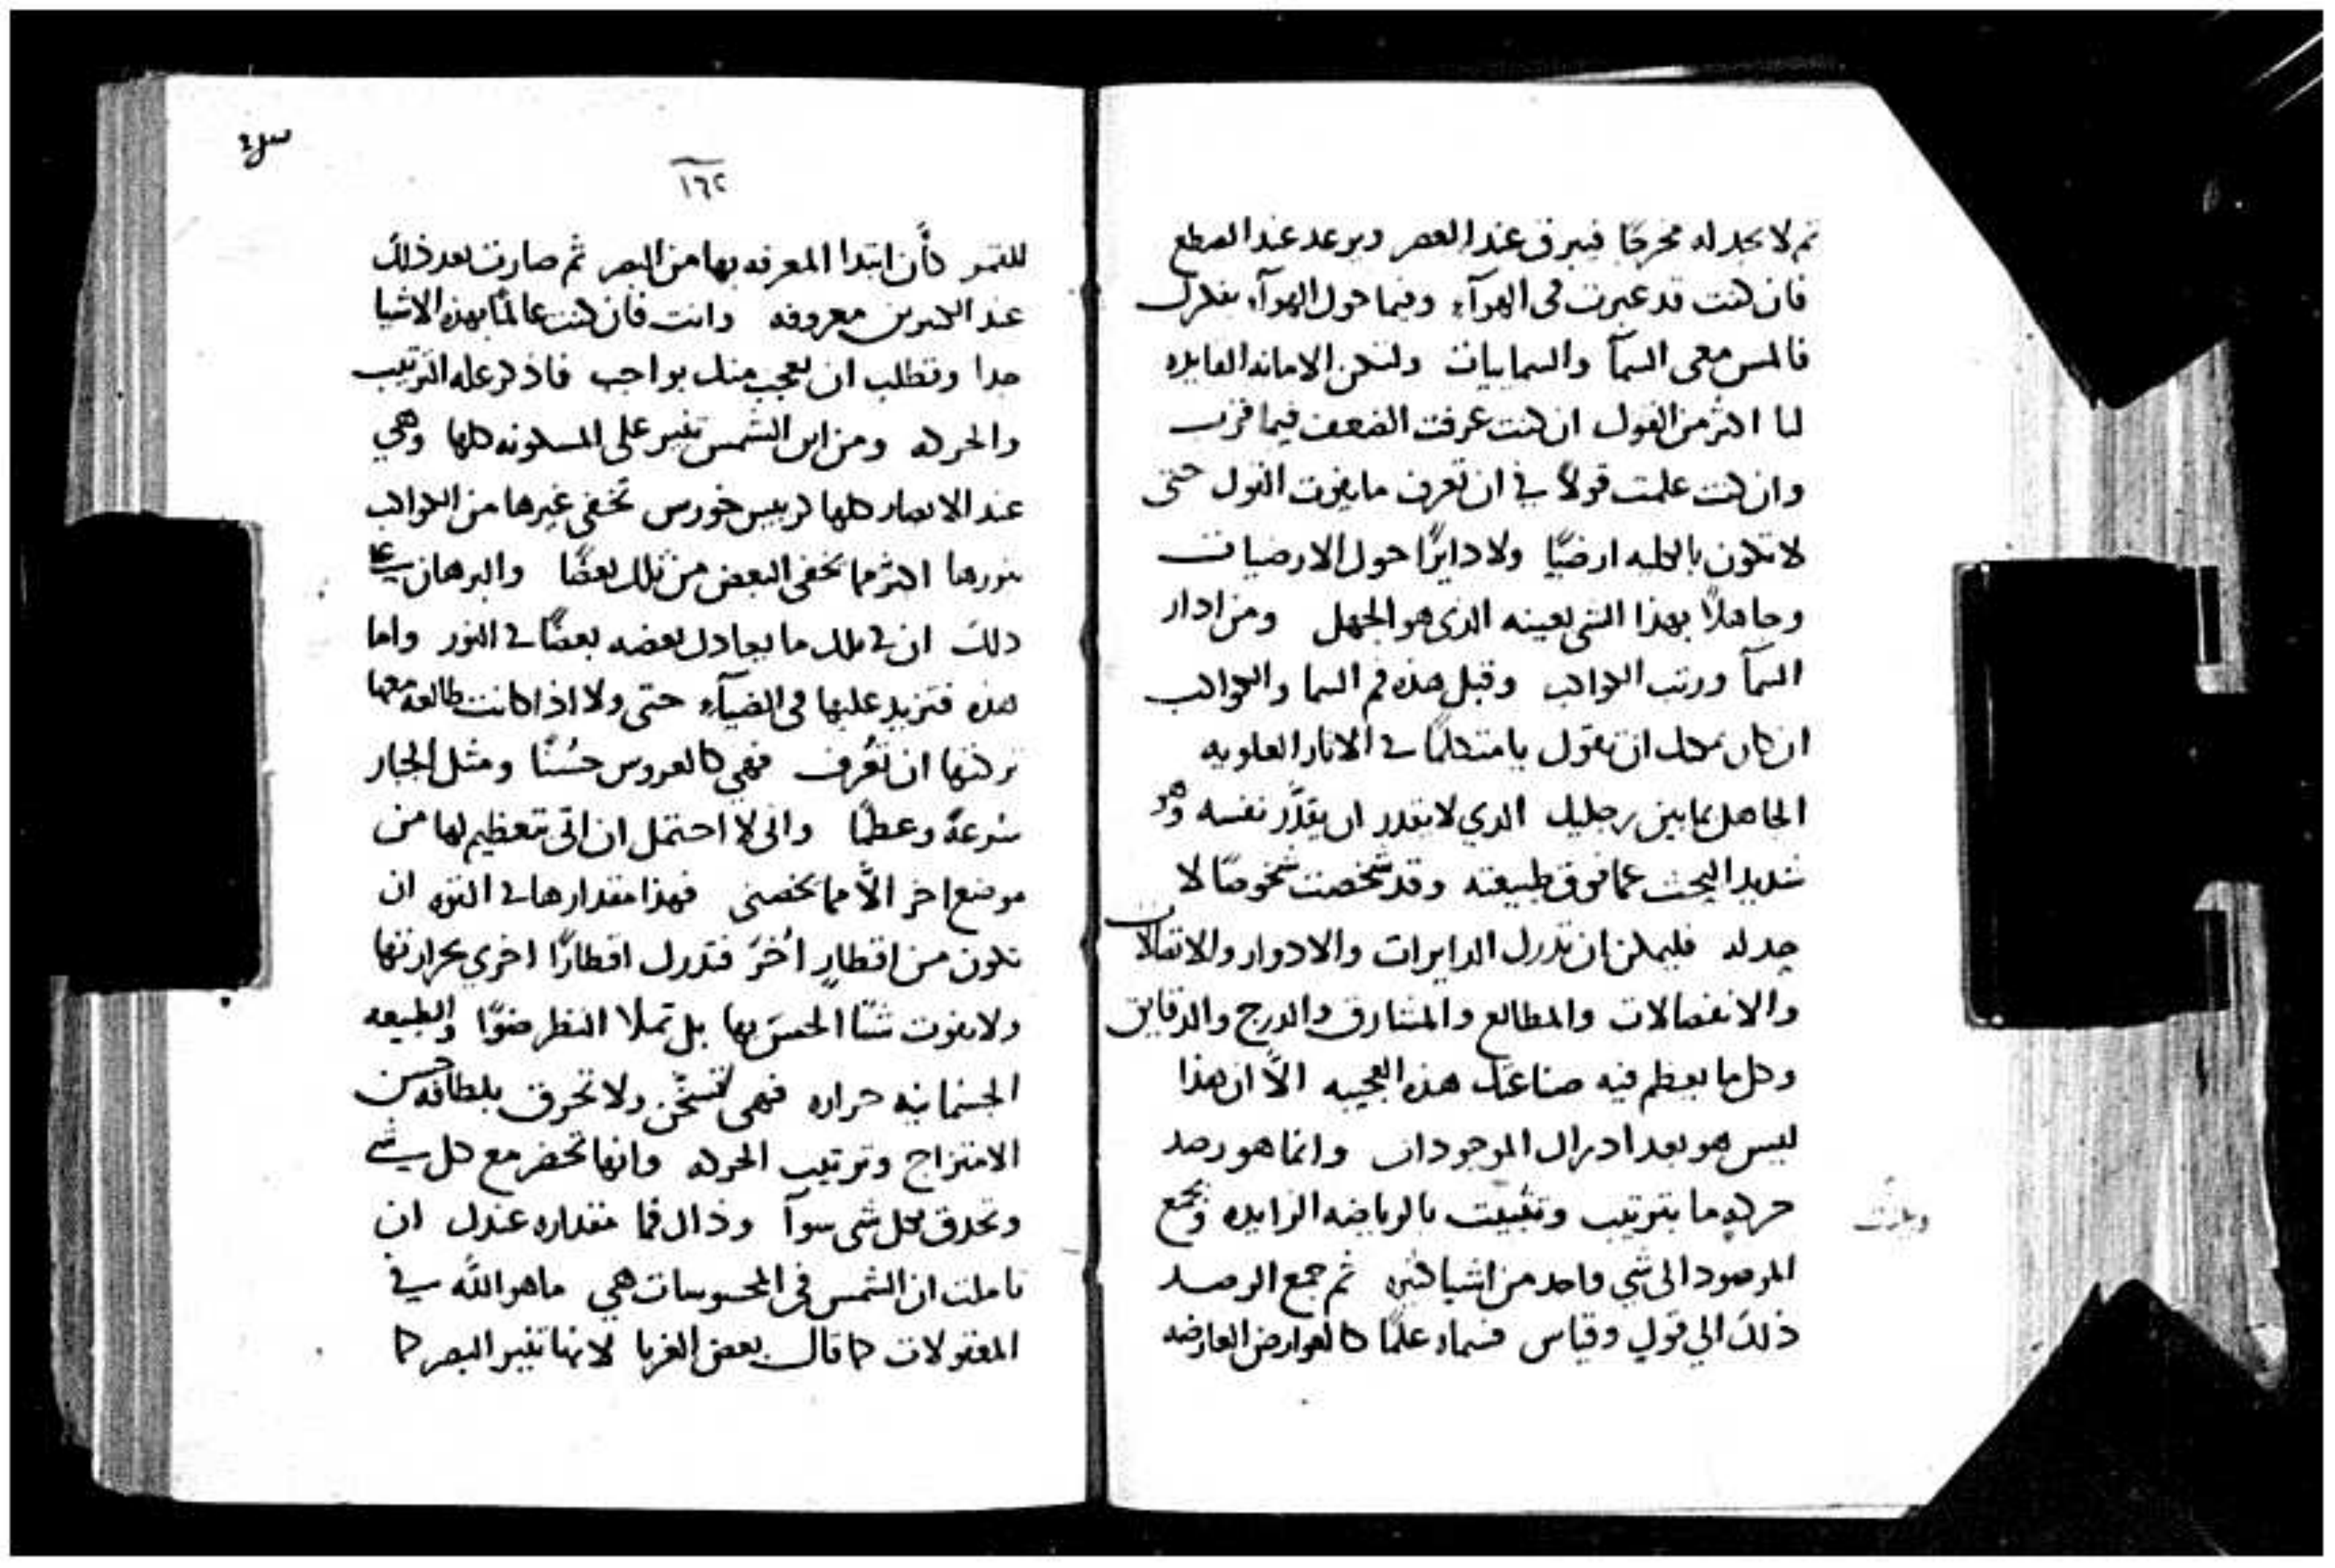 ثم لا يجد له مخرجًا فيبرق عند العصر ويرعد عند القطع
فان كنت قد عبرت في الهوآء وفيما حول الهوآء بفكرك
فالمس معى السمآ والسماييات ولتكن الامانه القايده
لنا اكثر من القول ان كنت عرفت الضعف فيما قرب
وان كنت علمت قولاً في ان تعرف ما يفوت القول حتى
لا تكون بالكليه ارضيًا ولا دايرًا حول الارضيات
وجاهلاً بهذا الشي بعينه الذي هو الجهل ومن ادار
السمآ ورتب الكواكب وقبل هذه فم السما والكواكب
ان كان يمكنك ان تقول يا متكلمًا في الاثار العلويه
الجاهل بما بين رجليك الذي لا يقدر ان يقدّر نفسه وهو
شديد البحث عما فوق طبيعته وقد شخصت شخوصًا لا
حد له فليمكن ان تدرك الدايرات والادوار والاتصالات
والانفصالات والمطالع والمشارق والدرج والدقايق
وكل ما يعظم فيه صناعتك هذه العجيبه الاّ ان هذا
ليس هو بعد ادراك الموجودات وانما هو رصد
حركه ما بترتيب وتثبيت بالرياضه الزايده وجمع
المرصود الى شي واحد من اشيا كثيره ثم جمع الرصد
ذلك الي قول وقياس فسماه علمًا كالعوارض العارضه
١٦٢
للقمر كأن ابتدا المعرفه بها من البصر ثم صارت بعد ذلك
عند الكثيرين معروفه وانت فان كنت عالمًا بهذه الاشيا
جدا وتطلب ان يعجب منك بواجب فاذكر عله الترتيب
والحركه ومن اين الشمس تنير على المسكونه كلها وهي
عند الابصار كلها كرييس خورس تخفى غيرها من الكواكب
بنورها اكثر مما تخفى البعض من تلك بعضًا والبرهان على
ذلك ان في تلك ما يعادل بعضه بعضًا في النور واما
هذه فتزيد عليها في الضيآء حتى ولا اذا كانت طالعه معها
تركتها ان تعُرف فهي كالعروس حسُنًا ومثل الجبار
سرعهً وعظمًا وانى لا احتمل ان اتى تعظيم لها من
موضع اخر الاّ مما يخصنى فهذا مقدارها في القوه ان
تكون من اقطارٍ اُخرَ فتدرك اقطارًا اخري بحرارتها
ولا يفوت شيًا الحسّ بها بل تملا النظر ضوًا والطبيعه
الجسمانيه حراره فهي تُسخّن ولا تحرق بلطافه حسن
الامتزاج وترتيب الحركه وانها تحضر مع كل شي
وتحدق بكل شى سوآ وذاك فما مقداره عندك ان
تاملت ان الشمس في المحسوسات هي ما هو اللّه في
المعقولات كما قال بعض الغربا لانها تنير البصر كما